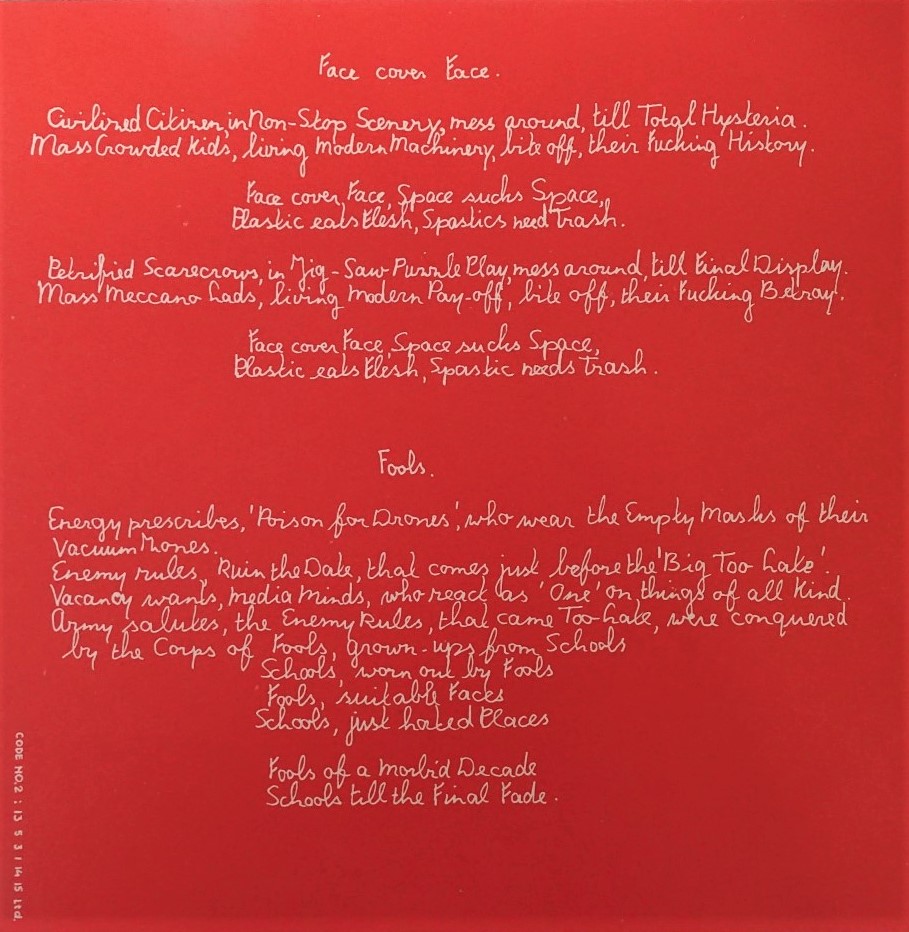 Face cover Face.
Civilized Citizen, in Non-Stop Scenery, mess around, till Total Hysteria.
Mass Crowded Kids, living Modern Machinery, bite off, their Fucking History.
Face cover Face, Space sucks Space,
Plastic eats Flesh, Spastics need Trash.
Petrified Scarecrows, in Jig-Saw Puzzle Play, mess around, till Final Display.
Mass Meccano Lads, living Modern Pay-off, bite off, their Fucking Betray.
Face cover Face, Space sucks Space,
Plastic eats Flesh, Spastic needs Trash.
Fools.
Energy prescribes, 'Poison for Drones', who wear the Empty Masks of their
Vacuum Thones.
Enemy rules, Ruin the Date, that comes just before the 'Big Too Late'.
Vacancy wants, Media Minds, who react as 'One' on things of all Kind.
Army salutes, the Enemy Rules, that came Too Late, were conquered
by the Corps of Fools, grown-ups from Schools
Schools, worn out by Fools
Fools, suitable Faces
Schools, just hated Places
Fools of a Morbid Decade
Schools till the Final Fade.
CODE NO.2 : 13 5 3 1 14 15 Ltd.